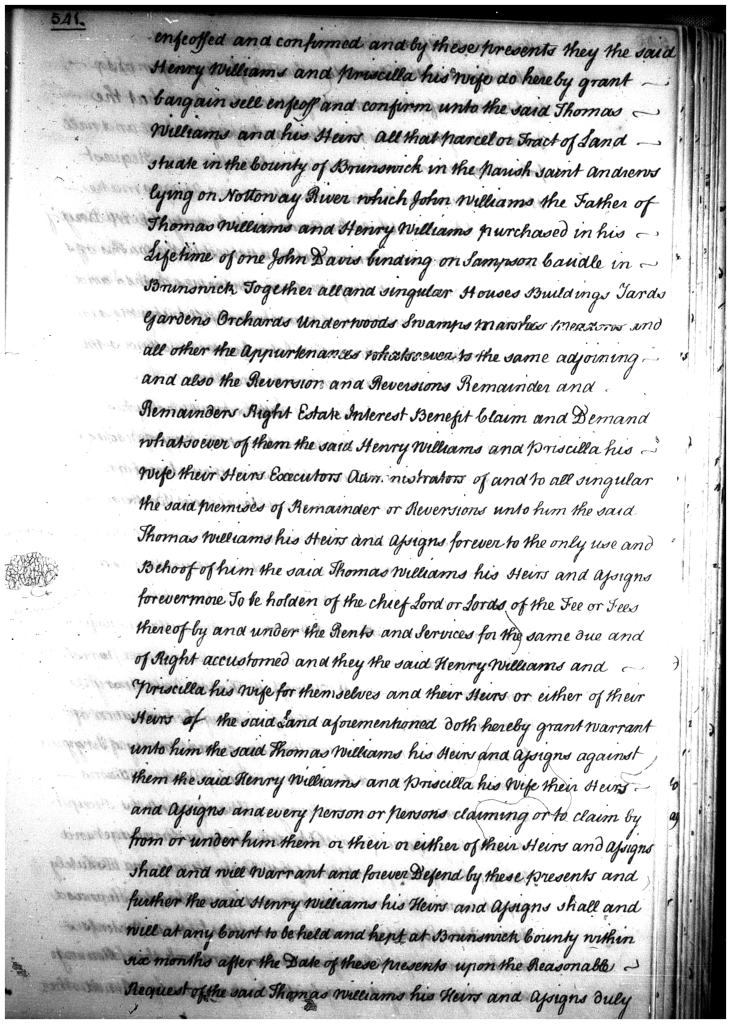 541.
enfeoffed and confirmed and by these presents they the said
Henry Williams and Priscilla his Wife do hereby grant
bargain sell enfeoff and confirm unto the said Thomas
Williams and his Heirs All that parcel or Tract of Land
stuate in the County of Brunswick in the parish saint Andrews
lying on Nottoway River which John Williams the Father of
Thomas Williams and Henry Williams purchased in his
Lifetime of one John Davis binding on Sampson Caudle in
Brunswick Together all and singular Houses Buildings Yards
Gardens Orchards Underwoods Swamps Marshes Meadows and
all other the Appurtenances whatsoever to the same adjoining
and also the Reversion and Reversions Remainder and
Remainders Right Estate Interest Benefit Claim and Demand
whatsoever of them the said Henry Williams and Priscilla his
Wife their Heirs Executors Administrators of and to all singular
the said premises of Remainder or Reversions unto him the said
Thomas Williams his Heirs and Assigns forever to the only use and
Behoof of him the said Thomas Williams his Heirs and Assigns
forevermore To be holden of the chief Lord or Lords of the Fee or Fees
thereof by and under the Rents and Services for the same due and
of Right accustomed and they the said Henry Williams and
Priscilla his Wife for themselves and their Heirs or either of their
Heirs of the said Land aforementioned doth hereby grant warrant
unto him the said Thomas Williams his Heirs and Assigns against
them the said Henry Williams and Priscilla his Wife their Heirs
and Assigns and every person or persons claiming or to claim by
from or under him them or their or either of their Heirs and Assigns
shall and will Warrant and forever Defend by these presents and
further the said Henry Williams his Heirs and Assigns shall and
will at any Court to be held and kept at Brunswick County within
six months after the Date of these presents upon the Reasonable
Request of the said Thomas Williams his Heirs and Assigns duly